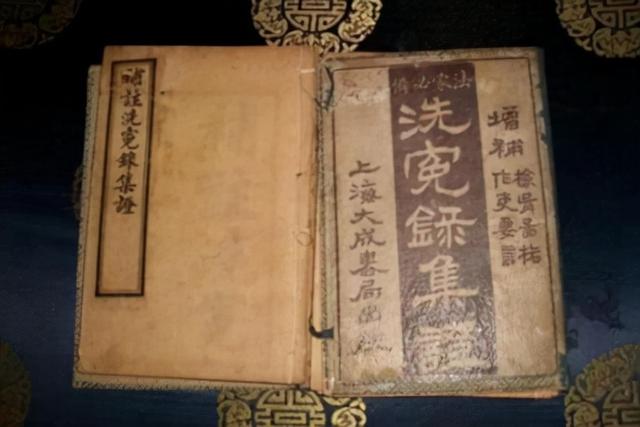 法家必備
增補
檢骨圖格
作吏要言
洗冤錄集證
上海大成書局
補註洗冤錄集證